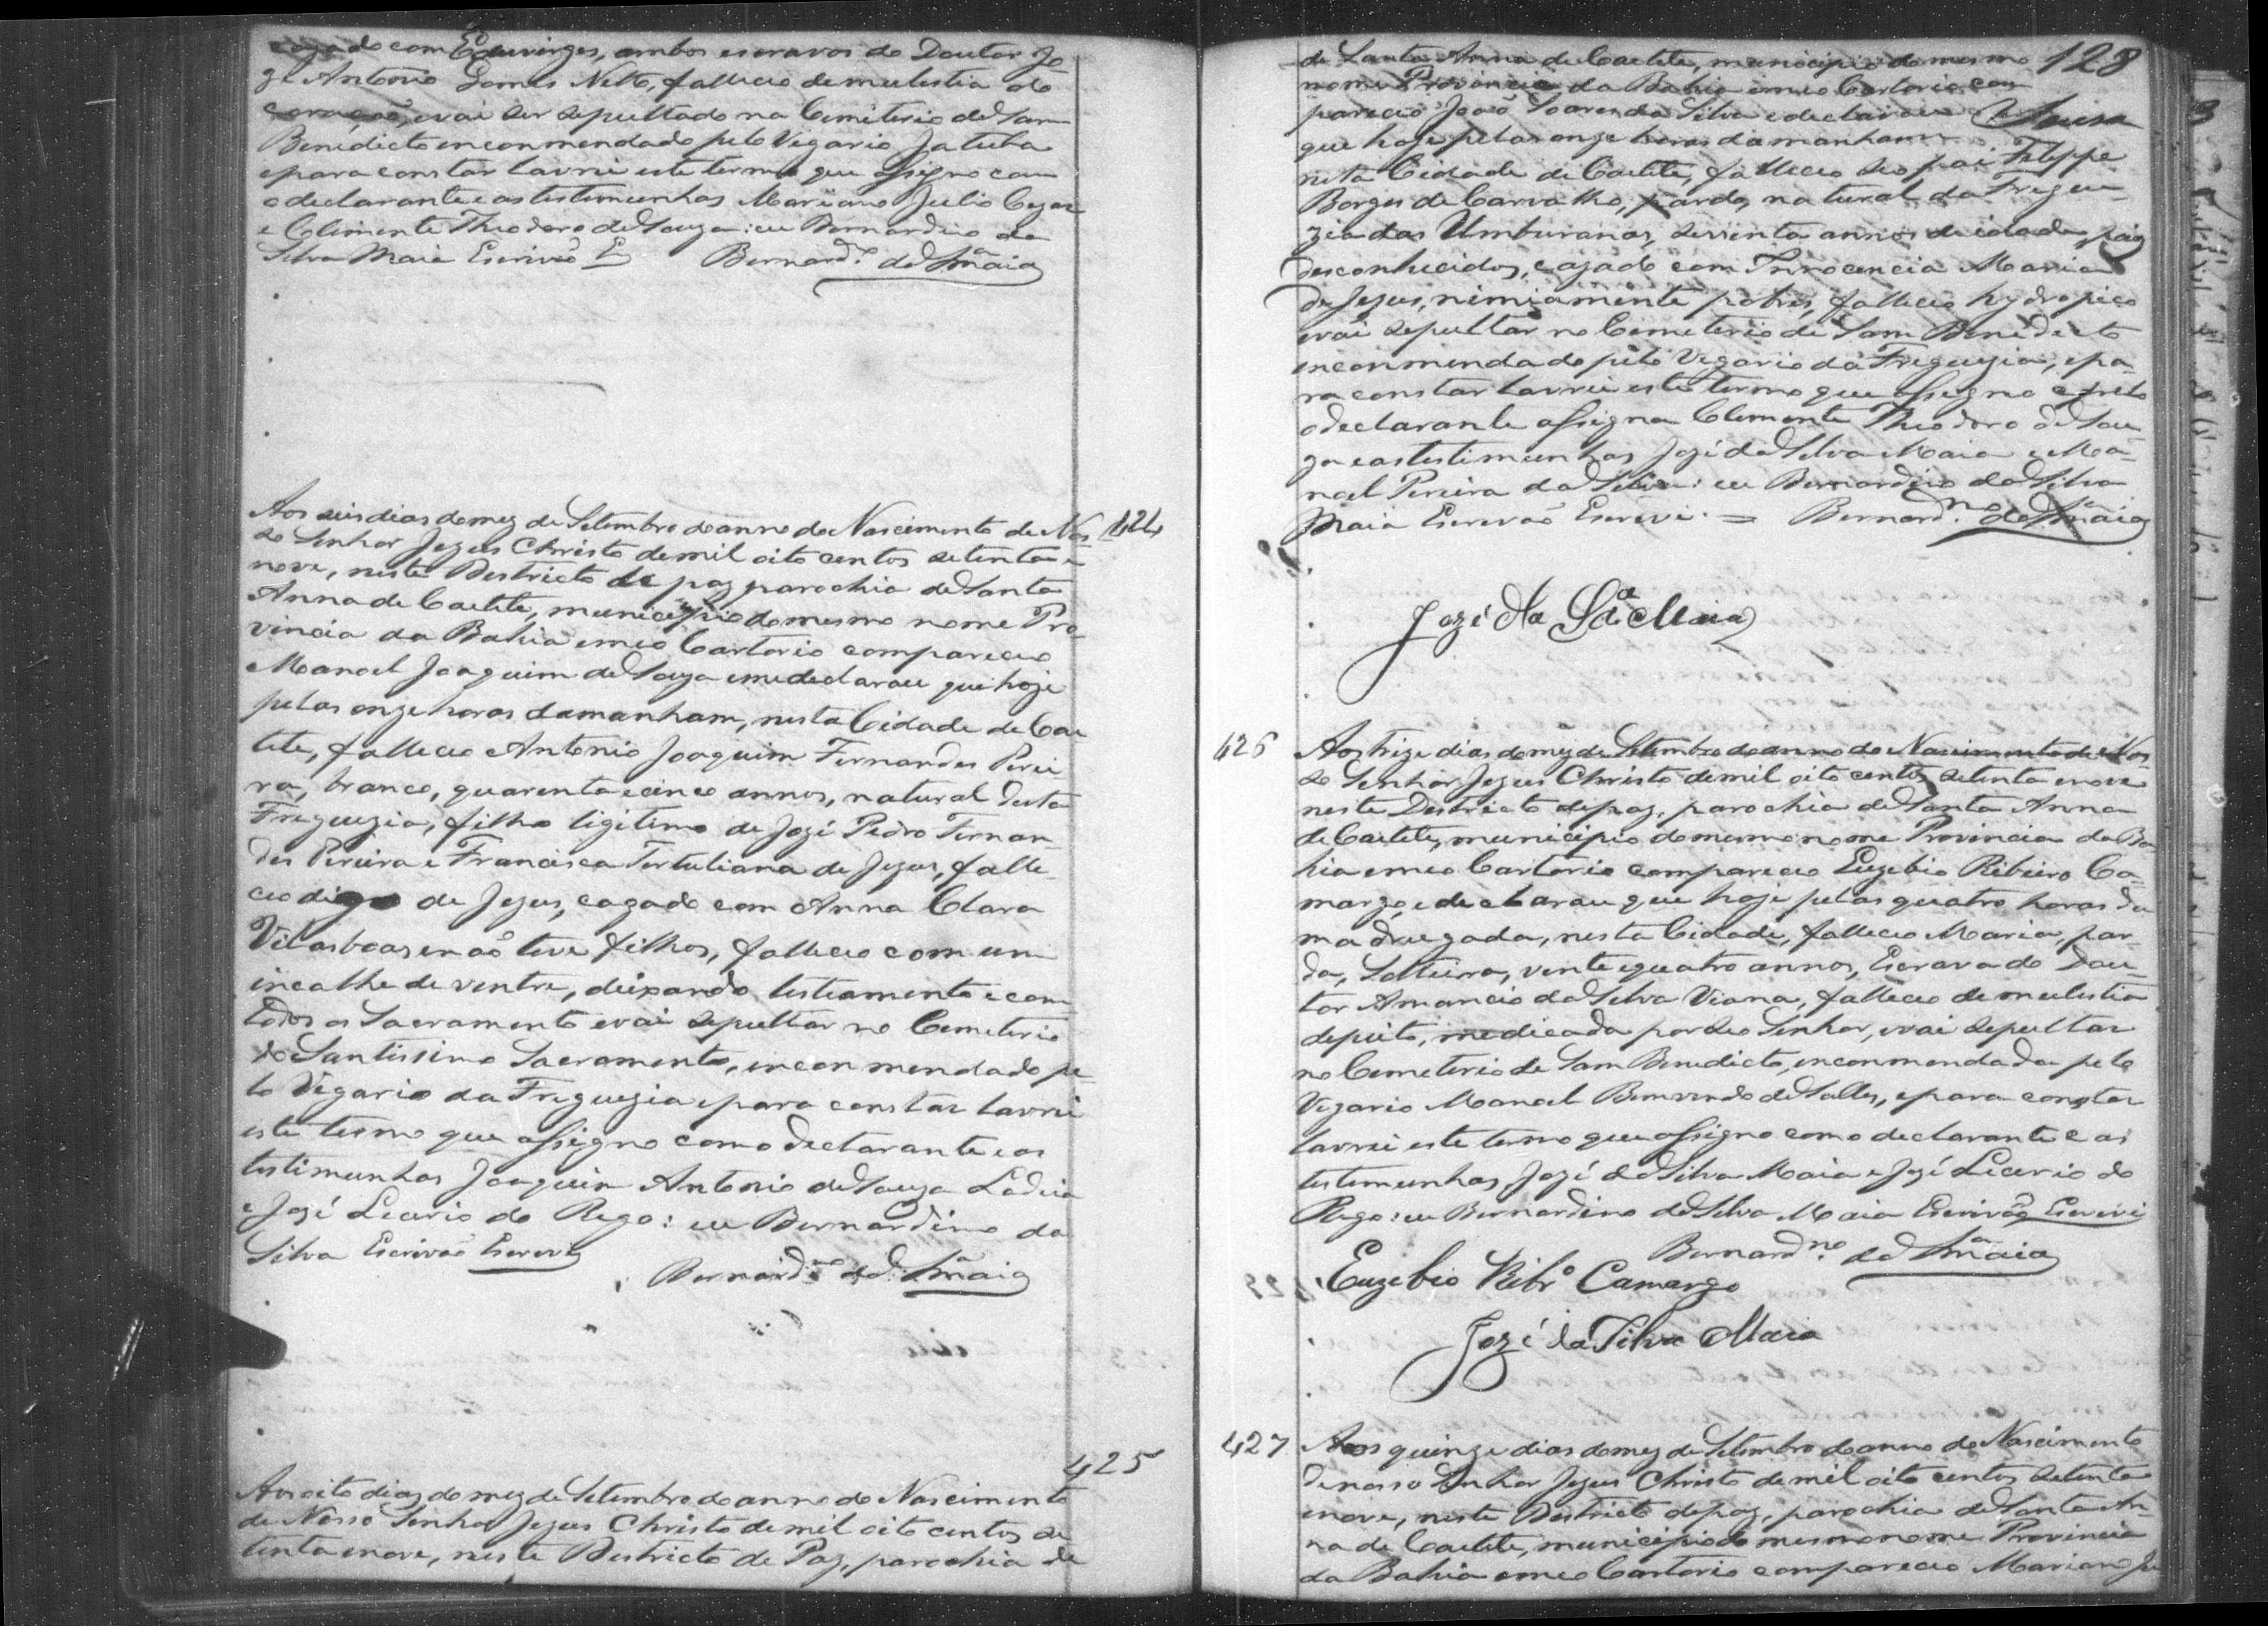 cazado com Eduviges, ambos escravos do Doutor Jo
ze Antonio Gomes Netto, falleceo de mulestia do
coração, evai ser sepultado na Cemiterio de Sam
Benedicto enconmendado pelo Vigario Jatuba
epara constar lavrei este termo que assigno com
o declarante e as testimunhas Mariano Julio Cezar
e Clemente Theodoro de Souza: eu Bernardino da
Silva Maia Escrivão E Bernard.no da S.a Maia
424
Aos seis dias do mez de Setembro do anno do Nascimento de Nos
so Senhor Jezus Christo de mil oito centos setenta e
nove, neste Destricto de paz parochia de Santa
Anna de Caetite, municipio do mesmo nome Pro
vincia da Bahia emeo Cartorio compareceo
Manoel Joaquim de Souza emedeclarou que hoje
pelas onze horas damanham, nesta Cidade de Cae
tite, falleceo Antonio Joaquim Fernandes Perei
ra, branco, quarenta e cinco annos, natural desta
Freguezia, filho ligitimo de Jozé Pedro Fernan
des Pereira e Francisca Tertuliana de Jezus, falle
ceo digo de Jezus, cazado com Anna Clara
Vilasboas enaõ teve filhos, falleceo com um
incalhe de ventre, deixando testamento e com
todos os Sacramento evai sepultar no Cemeterio
do Santissimo Sacramento, enconmendado pe
lo Vigario da Freguezia epara constar lavrei
este termo que assigno como declarante e as
testimunhas Joaquim Antonio de Souza Ladeia
e Jozé Licurio do Rego: eu Bernardino da
Silva Escrivaõ Escrevi
Bernard.no da S.a Maia
425
Aos oito dias do mez de Setembro do anno do Nascimento
de Nosso Senhor Jezus Christo de mil oito centos se
tenta enove, neste Destricto de Paz, parochia de
128
de Santa Anna de Caetite, municipio do mesmo
nome Provincia da Bahia emeo Cartorio com
pareceo João Soares da Silva edeclarou
que hoje pelas onze horas damanham
nesta Cidade de Caetite, falleceo seo pai Felippe
Borges de Carvalho, pardo, natural da Fregue
zia das Umburanas, sessenta annos de idade, pais
desconhecidos, cazado com Innocencia Maria
de Jezus, nimiamente pobres, falleceo hydropico
evai sepultar no Cemeterio de Sam Benedicto
enconmendado pelo Vigario da Freguezia, epa
ra constar lavrei este termo que assigno e pelo
o declarante assigna Clemente Theodoro de Sou
za e as testimunhas Jozé da Silva Maia e Ma
noel Pereira da Silva: eu Bernardino da Silva
Maia Escrevaõ Escrevi = Bernard.no da S.a Maia
Jozé da S.a Maia
426
Aos treze dias do mez de Setembro do anno do Nascimento de Nos
so Senhor Jezus Christo de mil oito centos setenta enove
neste Destricto de paz, parochia de Santa Anna
de Caetite, municipio do mesmo nome Provincia da Ba
hia emeo Cartorio compareceo Euzebio Ribeiro Ca
margo, edeclarou que hoje pelas quatro horas da
madrugada, nesta Cidade, falleceo Maria, par
da, Solteira, vente equatro annos, Escrava do Dou
tor Amancio da Silva Viana, falleceo de mulestia
depeito, medicada por seo Senhor, evai sepultar
no Cemeterio de Sam Benedicto, enconmendada pelo
Vigario Manoel Bemvindo de Salles, epara constar
lavrei este termo que assigno como declarante e as
testemunhas Jozé da Silva Maia e Jozé Licurio do
Rego: eu Bernardino da Silva Maia Escrivaõ Escrevi
Bernard.no da S.a Maia
Euzebio Ribr.o Camargo
Jozé da Silva Maia
427
Aos quinze dias do mez de Setembro do anno do Nascimento
de nosso Senhor Jezus Christo de mil oito centos setenta
enove, neste Destricto depaz, parochia de Santa An
na de Caetite, municipio do mesmo nome Provincia
da Bahia emeo Cartorio compareceo Mariano Ju